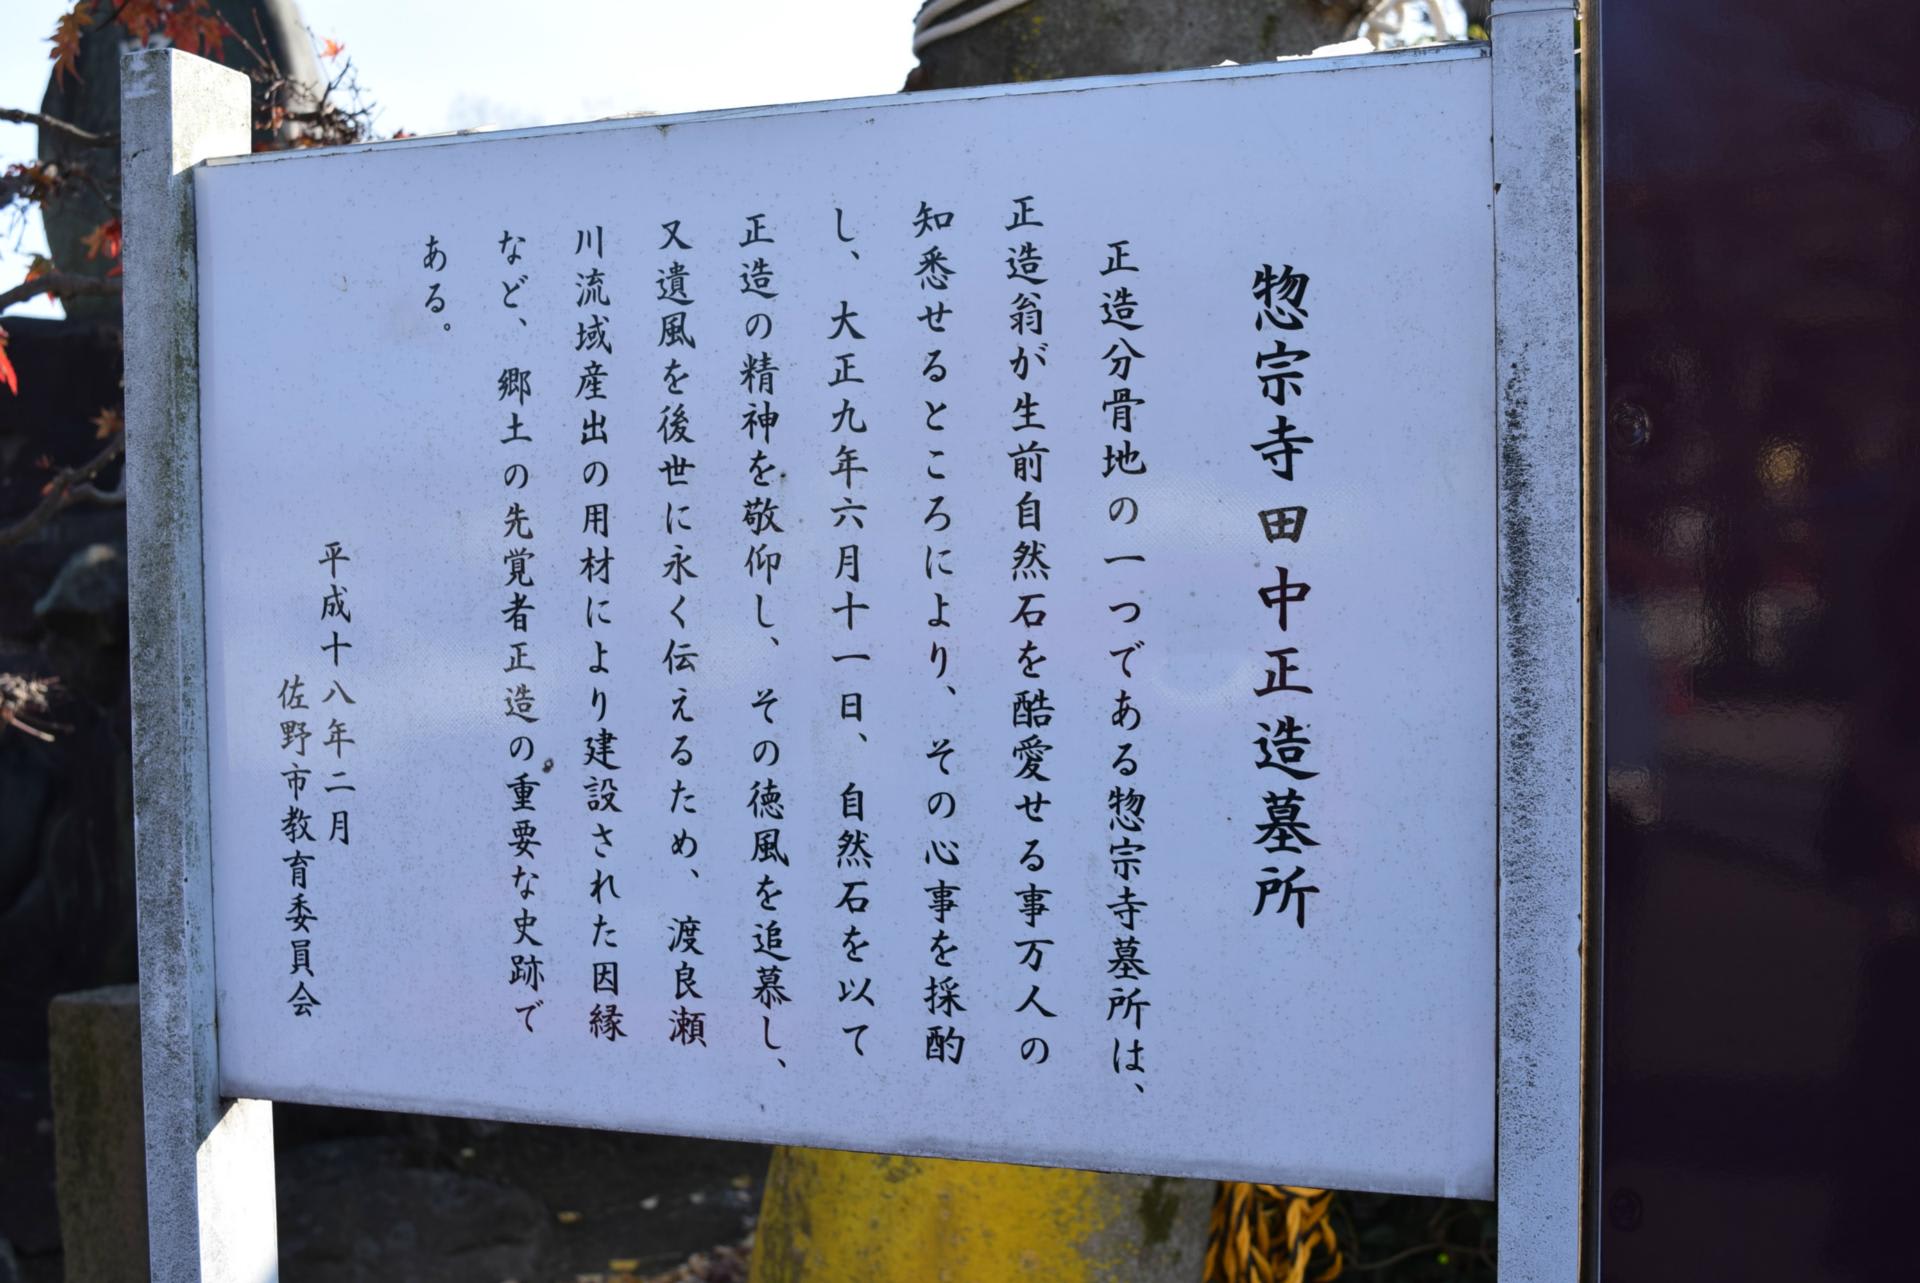 惣宗寺田中正造墓所
正造分骨地の一つである惣宗寺墓所は、
正造翁が生前自然石を酷愛せる事万人の
知悉せるところにより、その心事を採酌
し、大正九年六月十一日、自然石を以て
正造の精神を敬仰し、その徳風を追慕し、
又遺風を後世に永く伝えるため、渡良瀬
川流域産出の用材により建設された因縁
など、郷土の先覚者正造の重要な史跡で
ある。
平成十八年二月
佐野市教育委員会